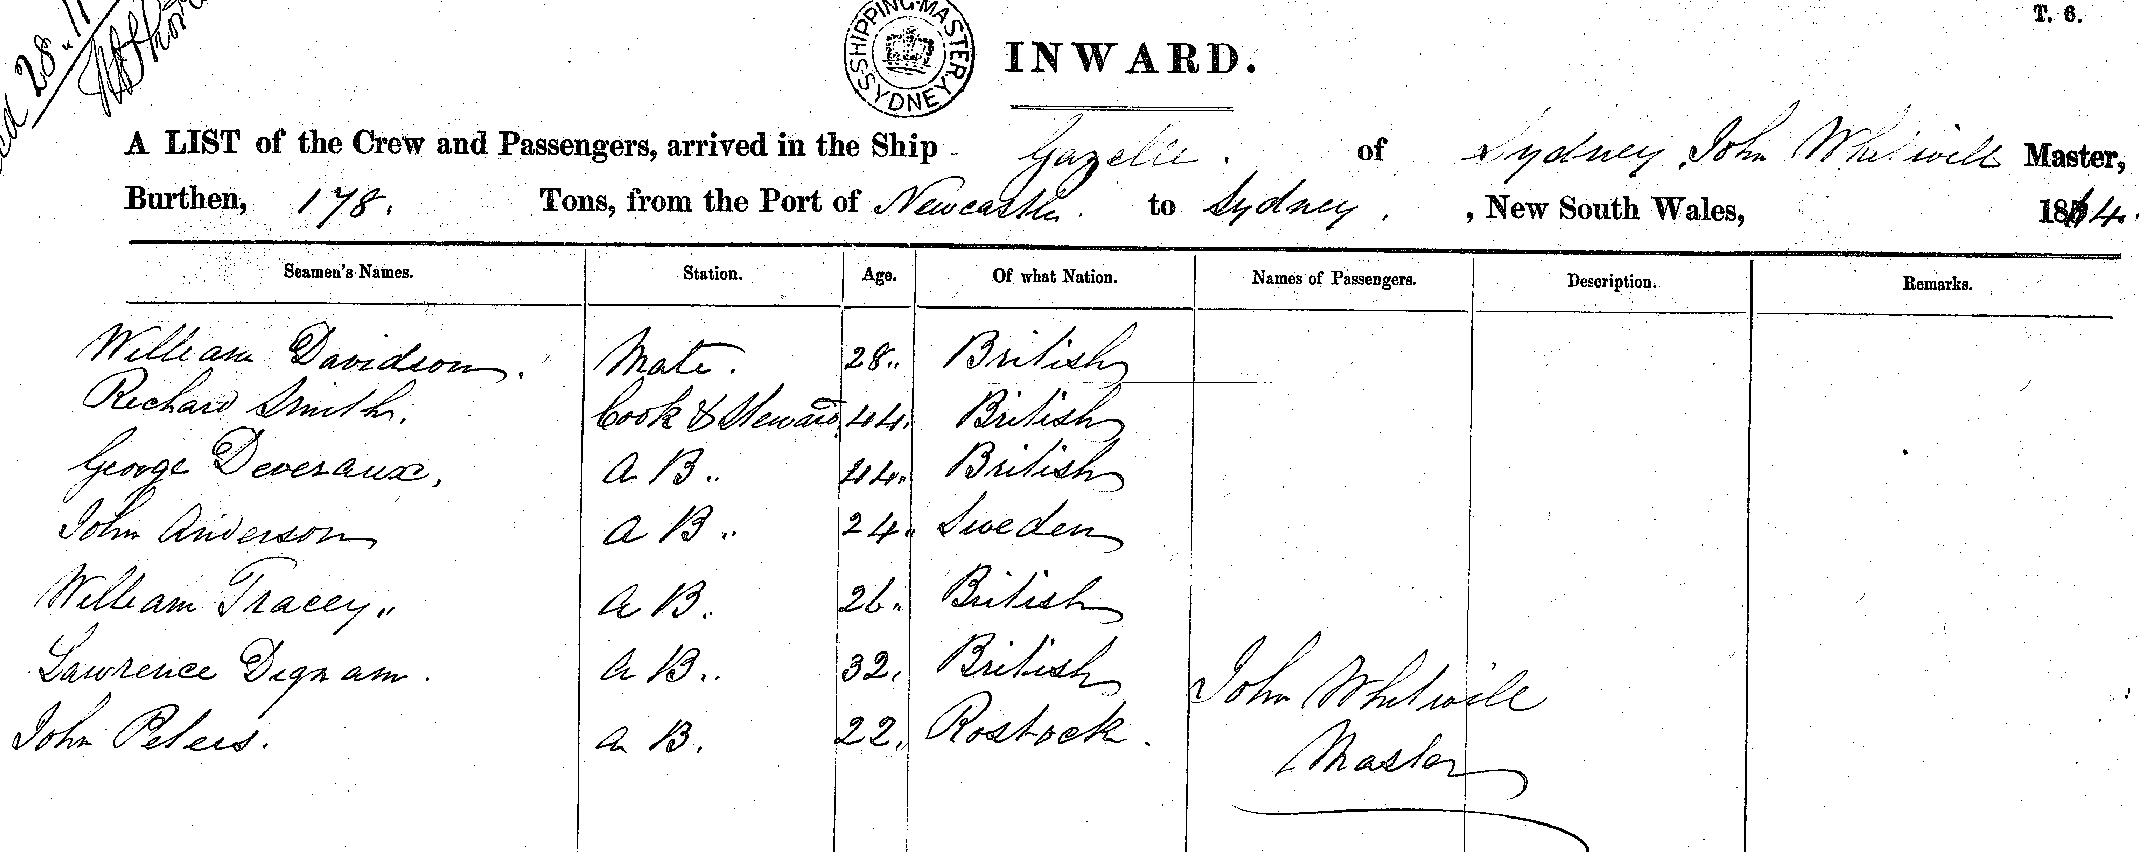 T. 6.
28.11
SHIPPING MASTER SYDNEY
INWARD.
A LIST of the Crew and Passengers, arrived in the Ship Gazelle. of Sydney, John Whitwill Master,
Burthen, 178. Tons, from the Port of Newcastle. to Sydney. , New South Wales, 1864.
Seamen's Names. Station. Age. Of what Nation. Names of Passengers. Description. Remarks.
William Davidson. Mate. 28. British
Richard Smith. Cook & Steward 44. British
George Deveraux, A B. 44. British
John Anderson A B. 24. Sweden
William Tracey. A B. 26. British
Lawrence Dignam. A B. 32. British
John Peters. A B. 22. Rostock.
John Whitwill
Master